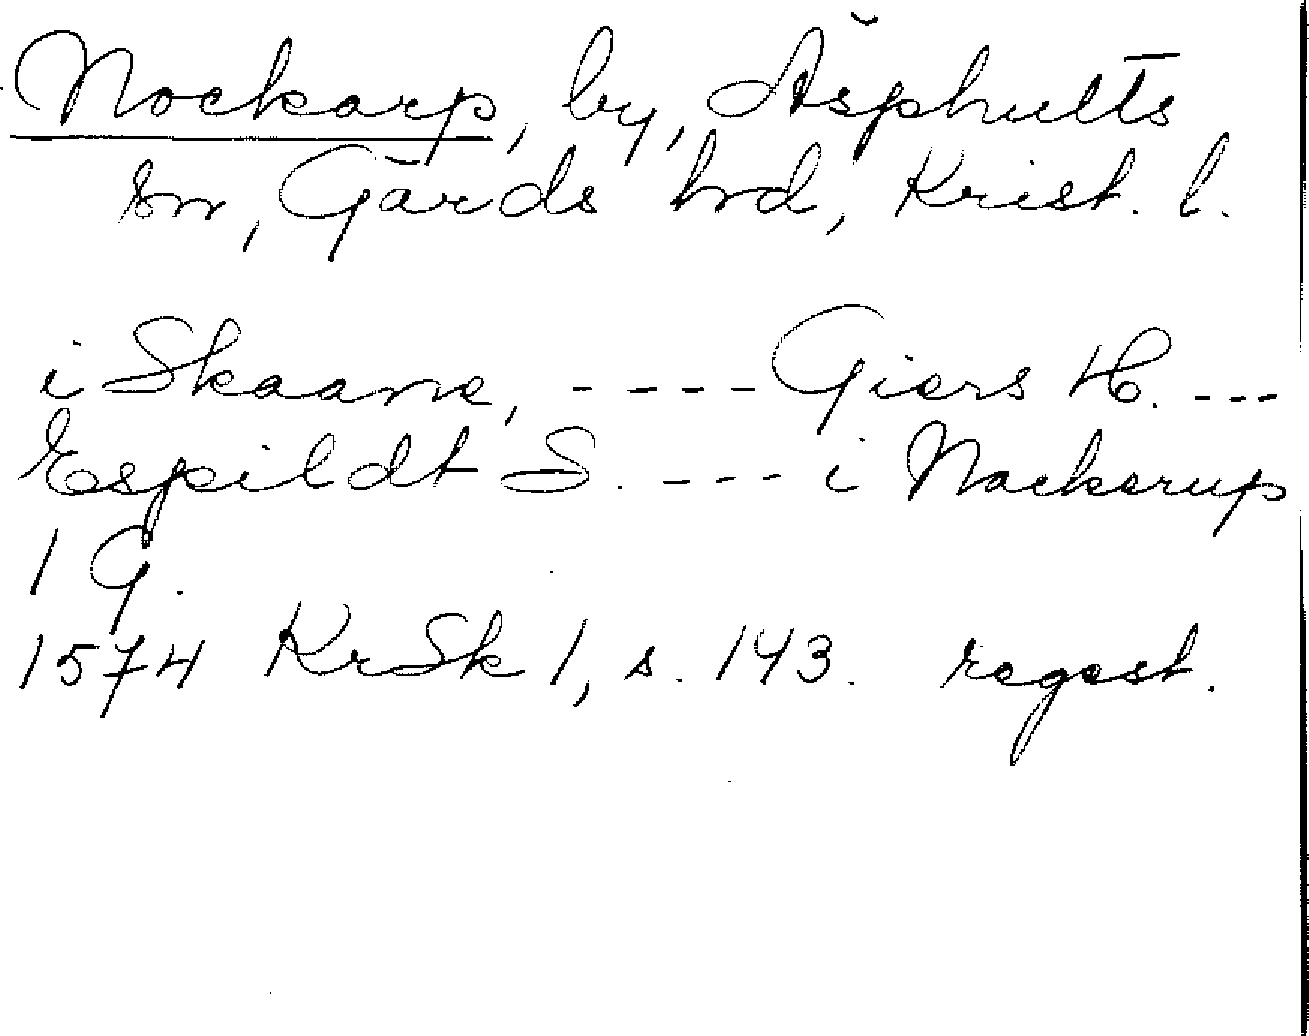 Nockarp, by, Äsphults
sn, Gärds hrd, Krist. l.
i Skaane, ---- Giers H. ---
Espildt S. ---- i Nackerup
1 G.
1574 KrSk 1, s. 143. regest.